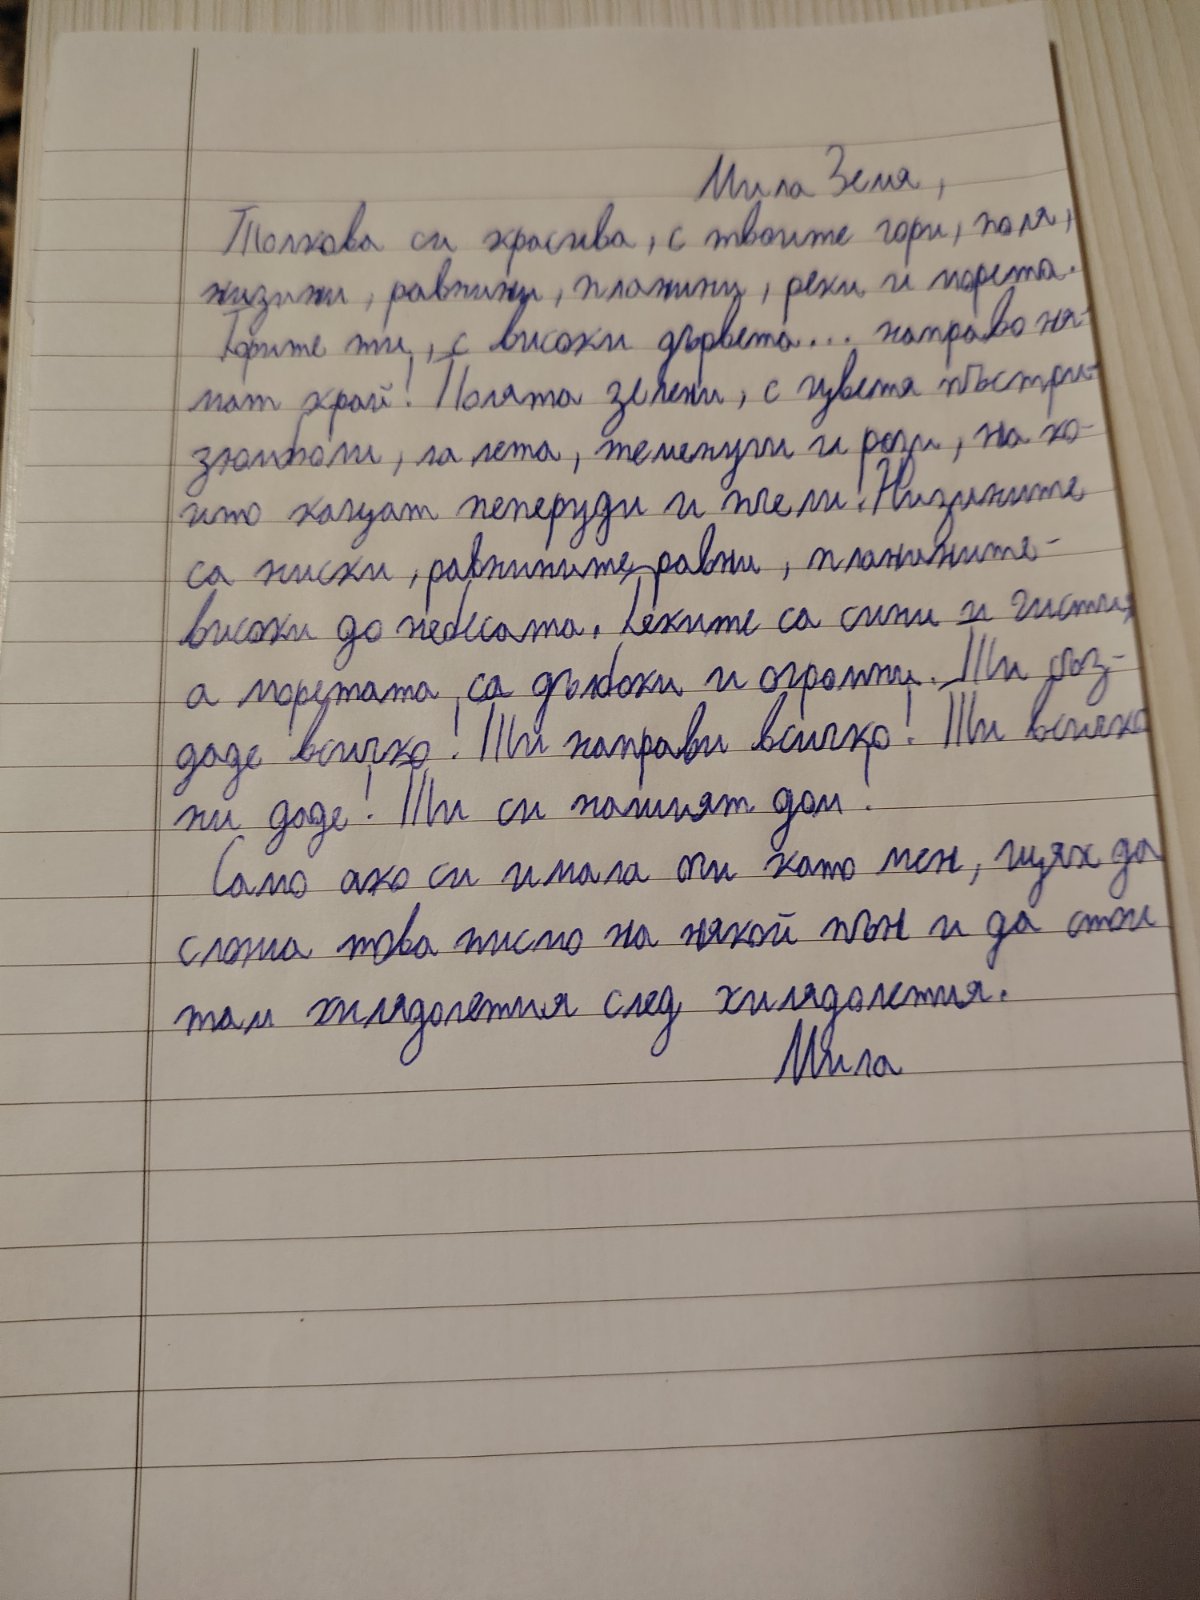 Мила Земя,
Толкова си красива, с твоите гори, поля,
низини, равнини, планини, реки и морета.
Горите ти, с високи дървета... направо ня-
мат край! Полята зелени, с цветя пъстри-
зюмбюли, лалета, теменуги и рози, на ко-
ито кацат пеперуди и пчели! Низините
са ниски, равнините равни, планините-
високи до небесата. Реките са сини и чисти,
а моретата са дълбоки и огромни. Ти съз-
даде всичко! Ти направи всичко! Ти всичко
ни даде! Ти си нашият дом!
Само ако си имала очи като мен, щях да
сложа това писмо на някой пън и да стои
там хилядолетия след хилядолетия.
Мила